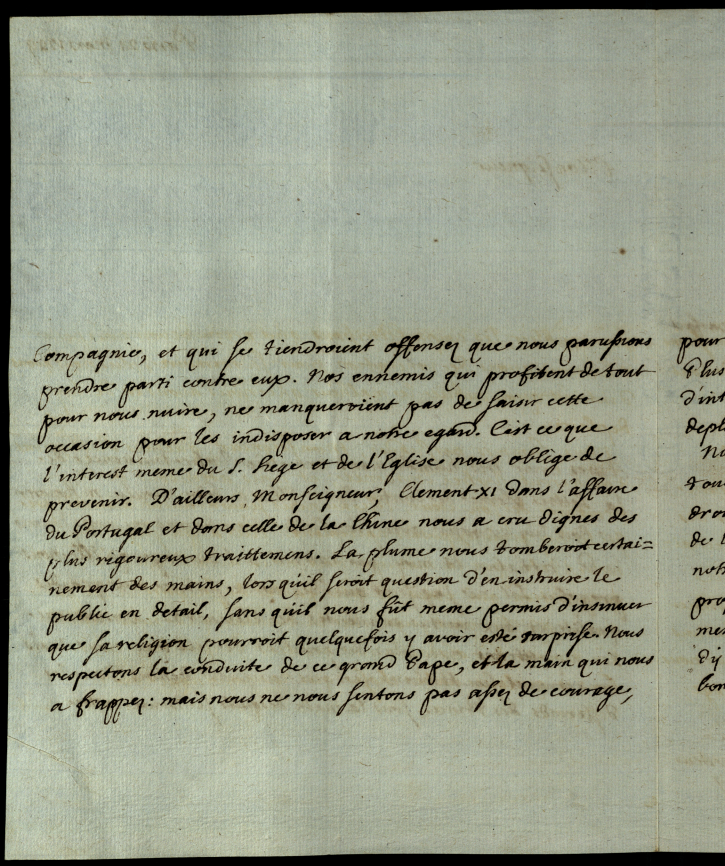 Compagnie, et qui se tiendroient offensez que nous parussions
prendre parti contre eux. Nos ennemis qui profitent de tout
pour nous nuire, ne manqueroient pas de saisir cette
occasion pour les indisposer a notre egard. C'est ce que
l'interest meme du S. Siege et de l'Eglise nous oblige de
prevenir. D'ailleurs, Monseigneur, Clement XI dans l'affaire
du Portugal et dans celle de la Chine nous a cru dignes des
plus rigoureux traittemens. La plume nous tomberoit certai=
nement des mains, lors qu'il seroit question d'en instruire le
public en detail, sans qu'il nous fût meme permis d'insinuer
que sa religion pourroit quelquefois y avoir esté surprise. Nous
respectons la conduite de ce grand Pape, et la main qui nous
a frappez: mais nous ne nous sentons pas assez de courage,
pour
plus
d'int
depl
tou
droi
de l
notr
prof
mes
bon